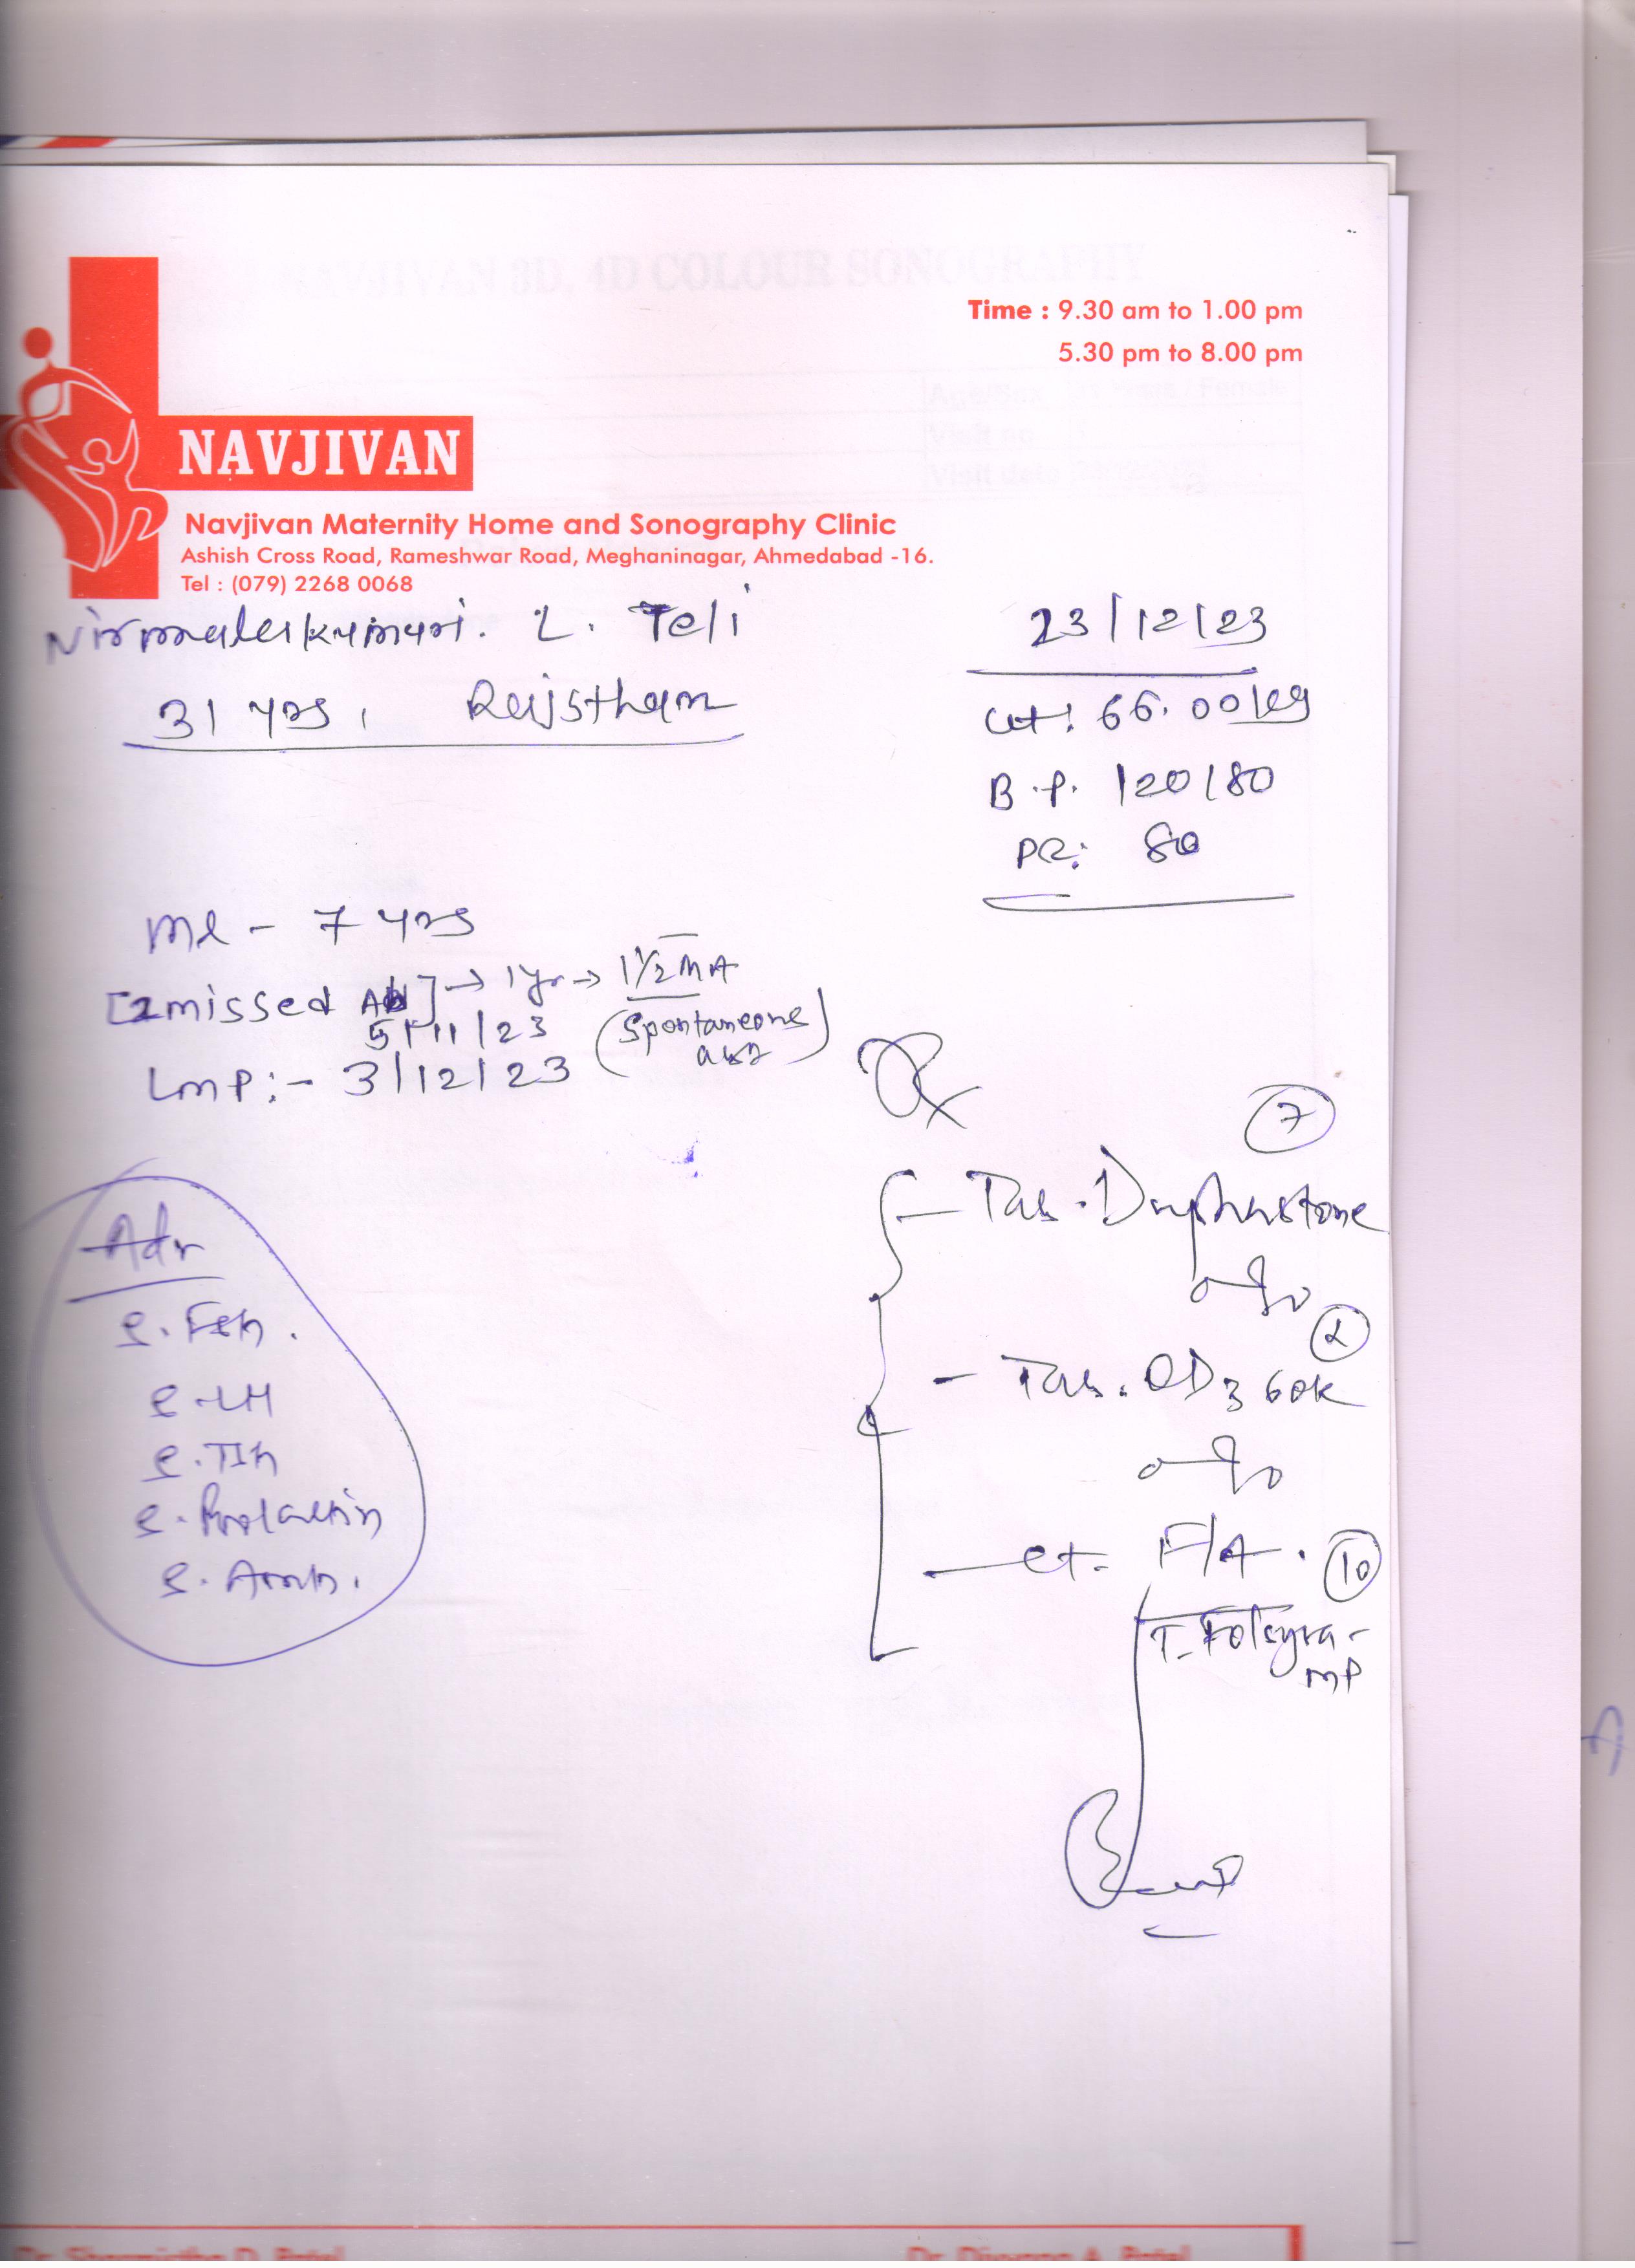 Time : 9.30 am to 1.00 pm
5.30 pm to 8.00 pm
NAVJIVAN
Navjivan Maternity Home and Sonography Clinic
Ashish Cross Road, Rameshwar Road, Meghaninagar, Ahmedabad -16.
Tel : (079) 2268 0068
Nirmalakumari. L. Teli
23/12/23
31 yrs, Rajstham
wt: 66.00kg
B.P. 120/80
PR: 80
ML - 7 yrs
[2 missed Ab] → 1yr → 1½ MA
5/11/23 (Spontaneone
LMP:- 3/12/23
Rx
7
- Tab. Duphastone
- Tab. D3 60K
Adv
S. FSH.
S. LH
S. TSH
S. Prolactin
S. AMH.
- ct. F/A. 10
T. Folsyra-
MP